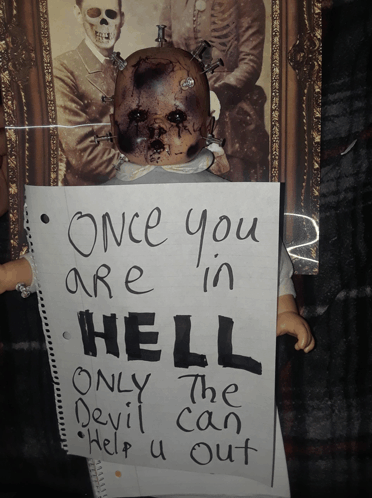 ONCe you
are in
HELL
ONLY The
Devil can
Help u out